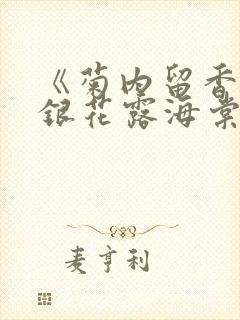 《菊内留香
银花露海棠
麦亨利